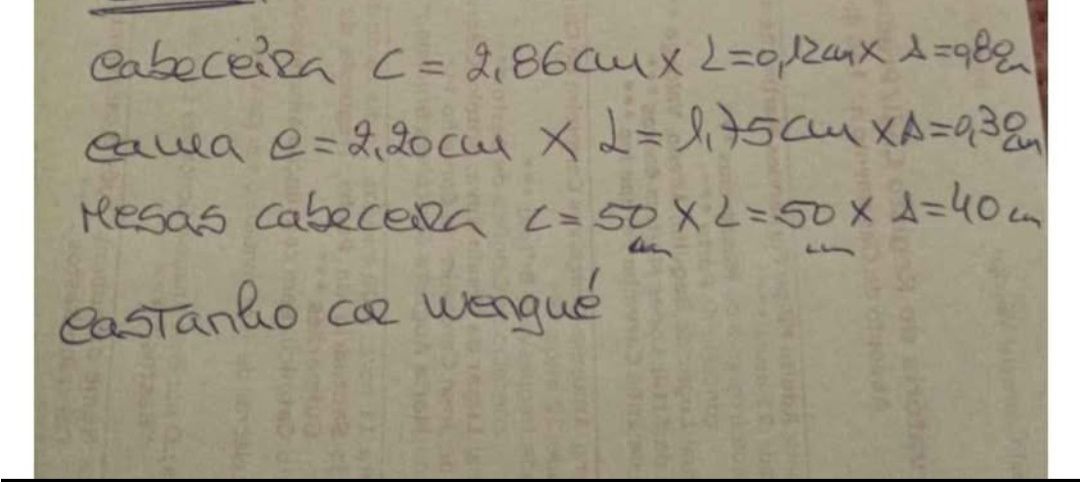 Cabeceira C = 2,86cm x L=0,12cm x A=0,80cm
Cama C = 2,20cm x L=1,75cm x A=0,30cm
Mesas cabeceira C=50cm x L=50cm x A=40cm
Castanho cor wengué